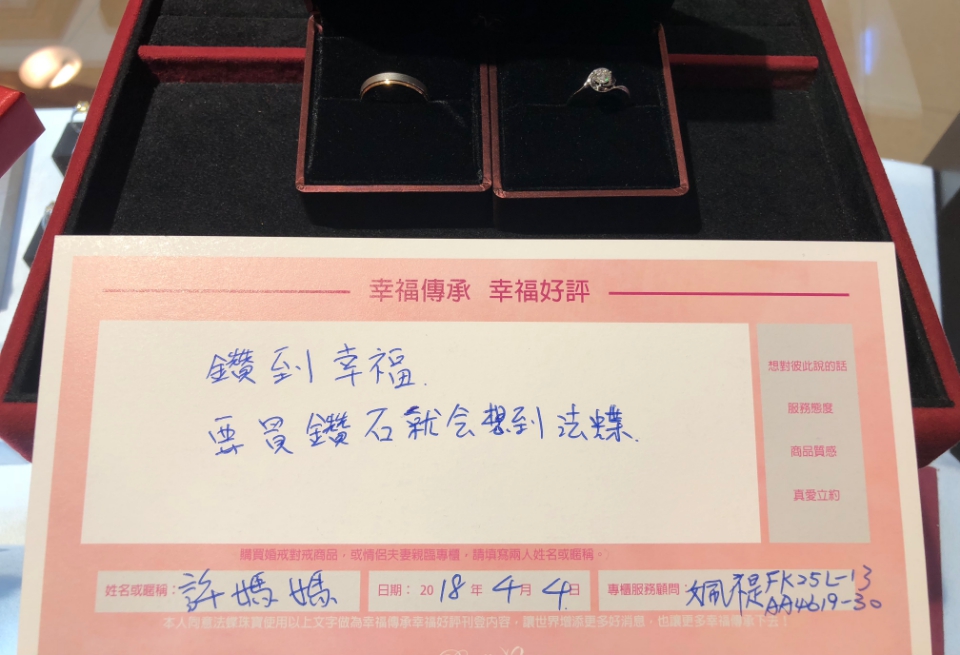 幸福傳承 幸福好評
鑽到幸福.
要買鑽石就会想到法蝶.
想對彼此說的話
服務態度
商品質感
真愛立約
購買婚戒對戒商品，或情侶夫妻親臨專櫃，請填寫兩人姓名或暱稱。
姓名或暱稱：許媽媽
日期：2018年4月4日
專櫃服務顧問：姵禔 FK25L-13
AA4619-30
本人同意法蝶珠寶使用以上文字做為幸福傳承幸福好評刊登內容，讓世界增添更多好消息，也讓更多幸福傳承下去！